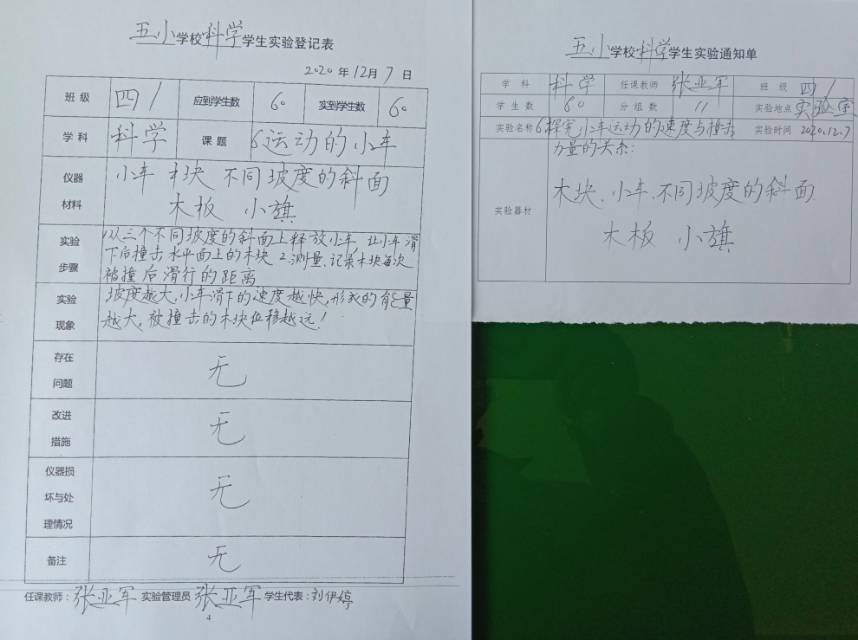 五小学校科学学生实验登记表
2020年12月7日
班级 四1 应到学生数 60 实到学生数 60
学科 科学 课题 6运动的小车
仪器材料 小车 木块 不同坡度的斜面
木板 小旗
实验步骤 1从三个不同坡度的斜面上释放小车,让小车滑
下后撞击水平面上的木块 2.测量、记录木块每次
被撞后滑行的距离
实验现象 坡度越大,小车滑下的速度越快,形成的能量
越大,被撞击的木块位移越远!
存在问题 无
改进措施 无
仪器损坏与处理情况 无
备注 无
任课教师:张亚军 实验管理员 张亚军 学生代表:刘伊婷
4
五小学校科学学生实验通知单
学科 科学 任课教师 张亚军 班级 四1
学生数 60 分组数 11 实验地点 实验室
实验名称 6探究小车运动的速度与撞击 实验时间 2020.12.7
力量的关系:
实验器材 木块、小车、不同坡度的斜面
木板 小旗